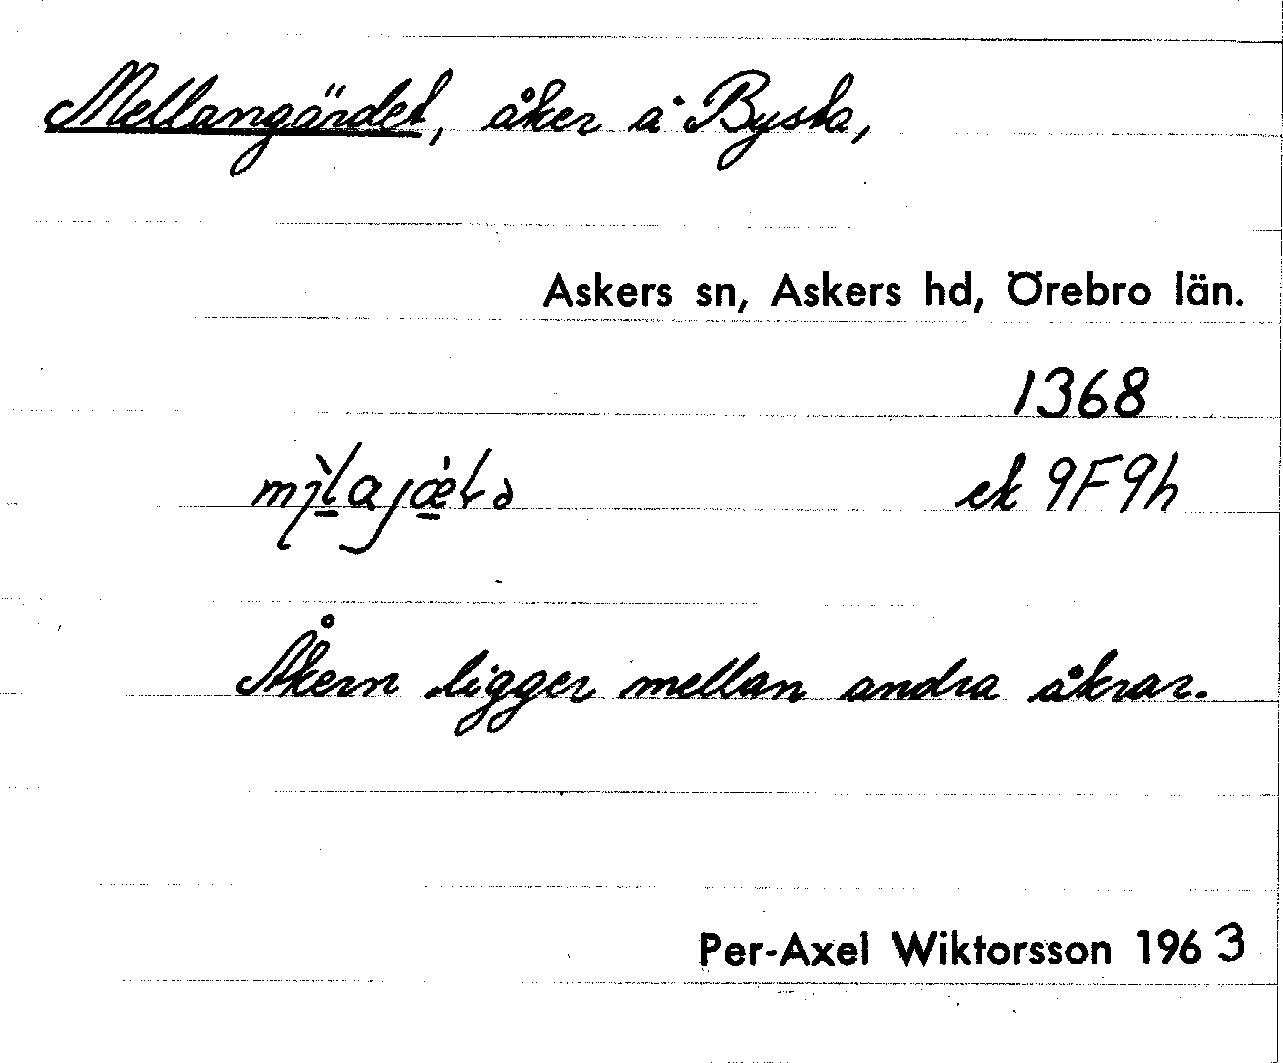 Mellangärdet, åker å Bysta,
Askers sn, Askers hd, Örebro län.
1368
ek 9F9h
Åkern ligger mellan andra åkrar.
Per-Axel Wiktorsson 1963